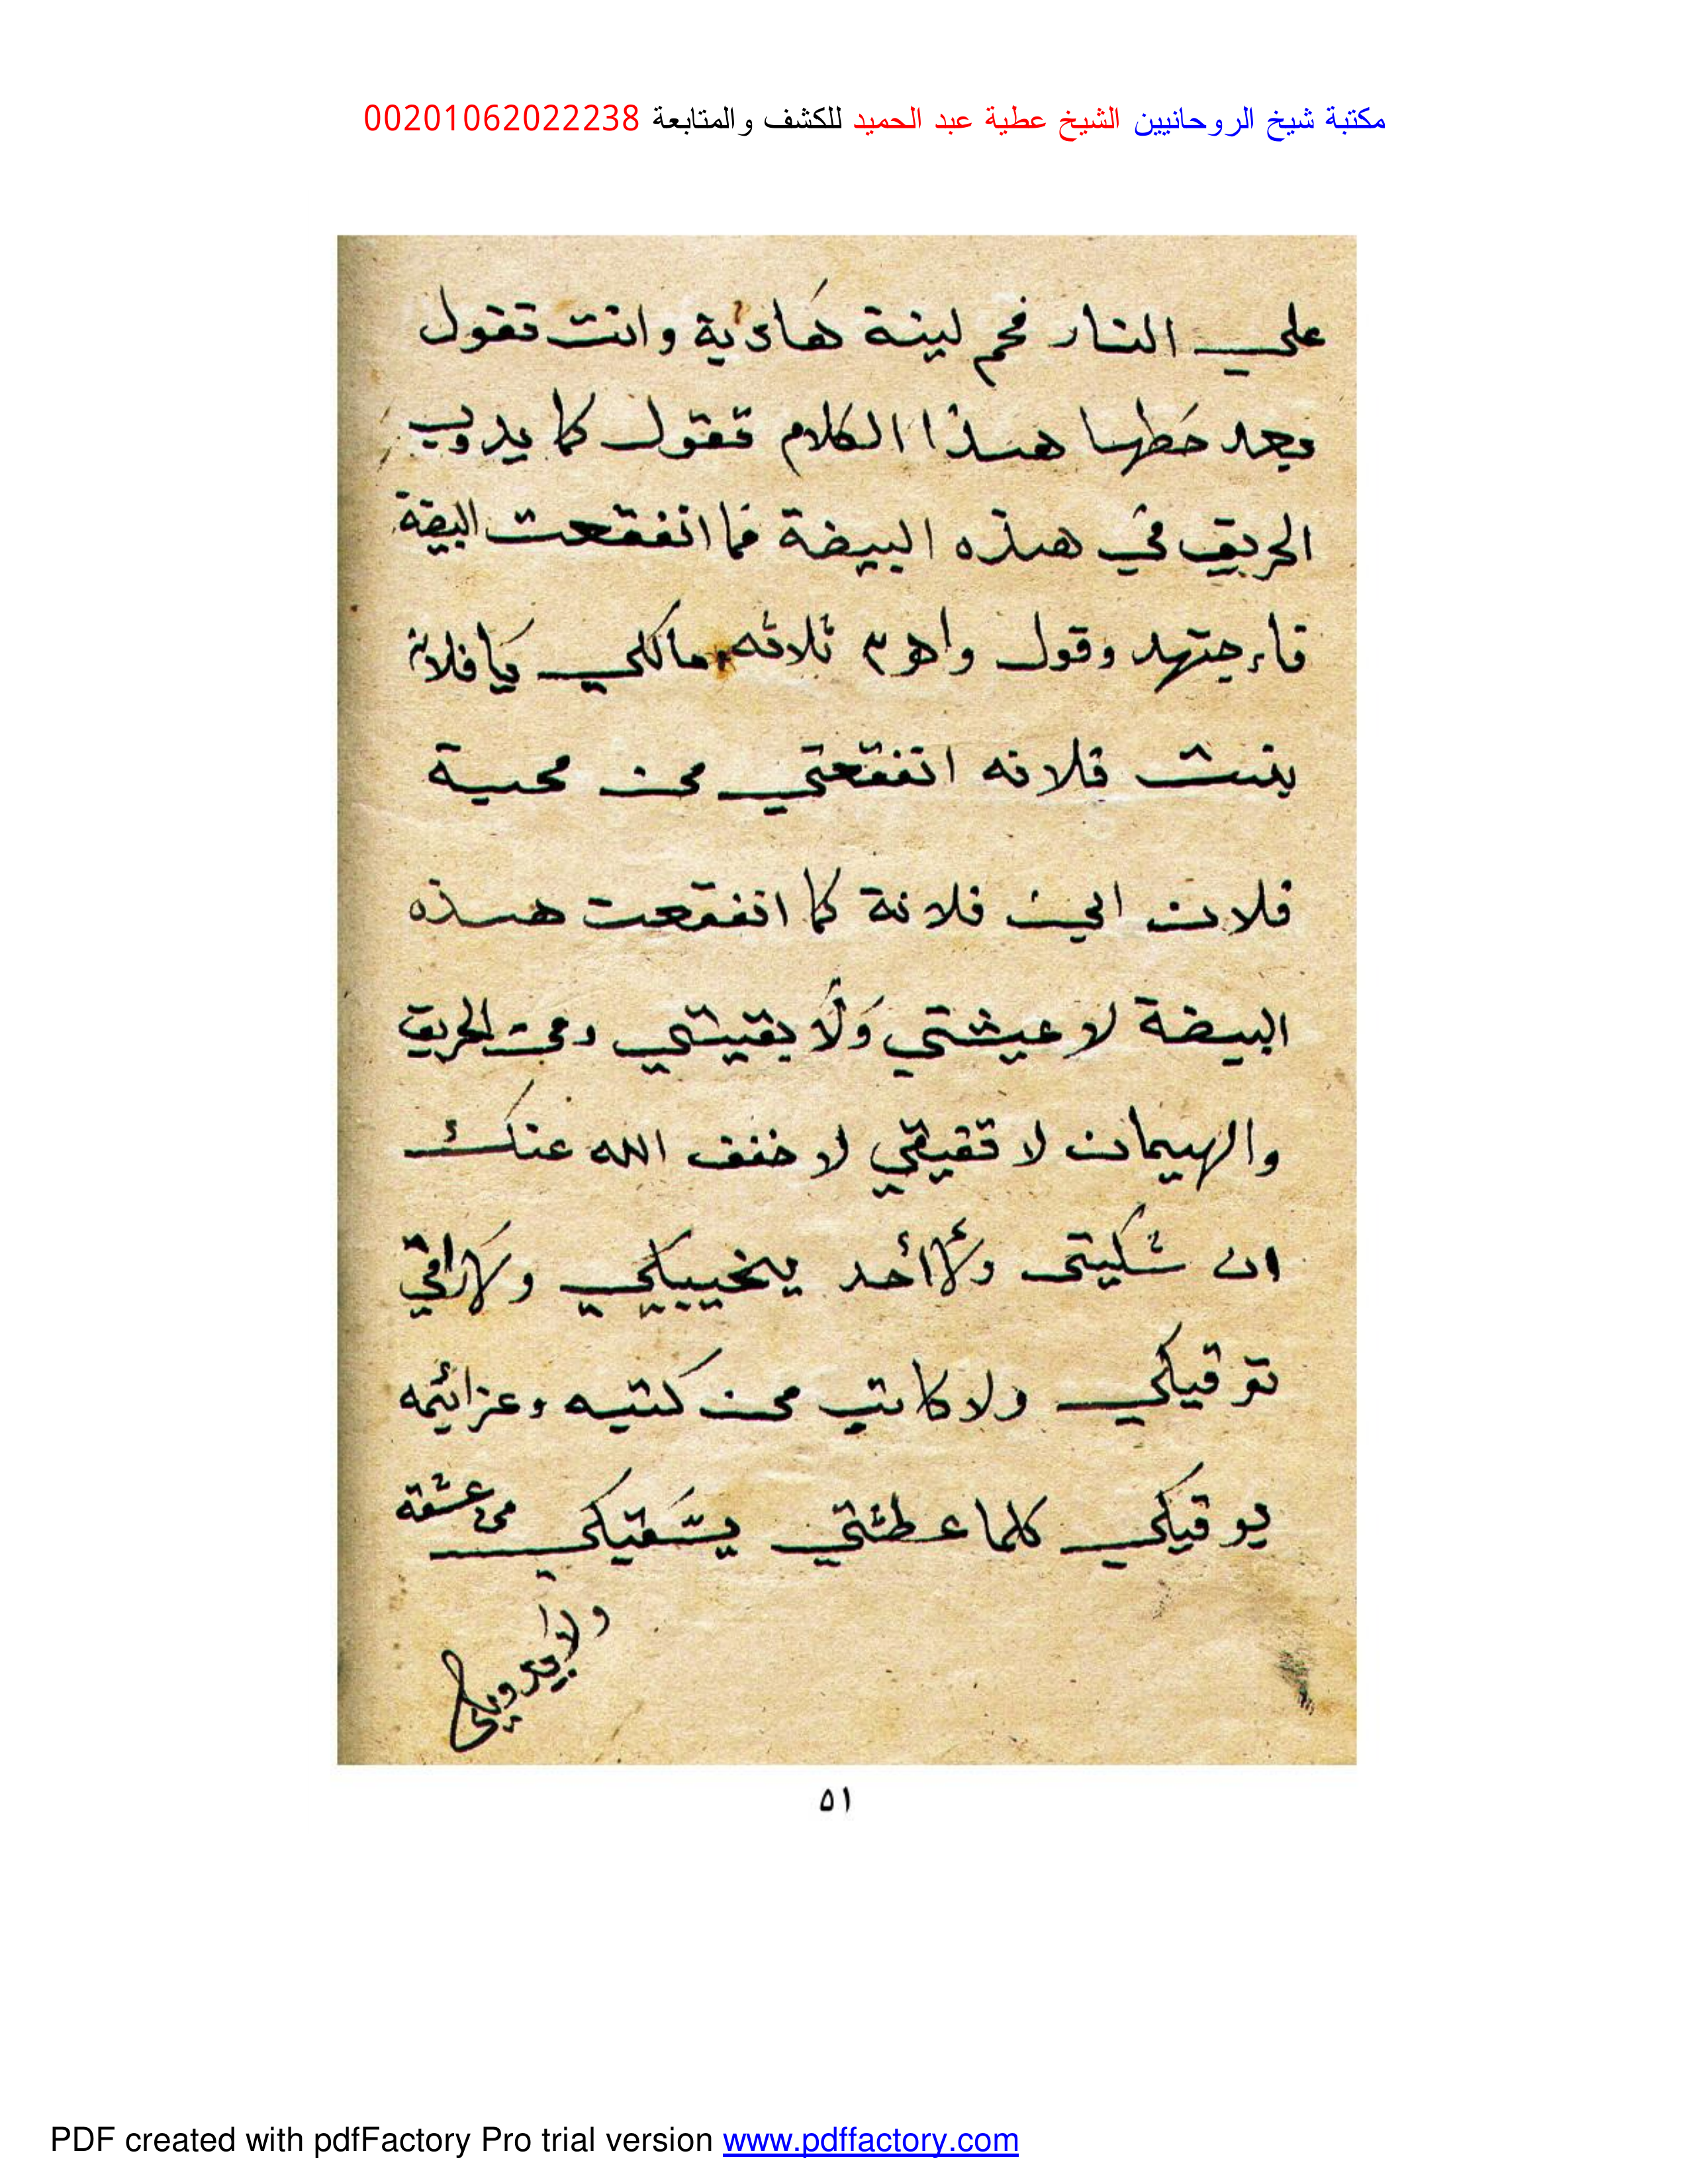 مكتبة شيخ الروحانيين الشيخ عطية عبد الحميد للكشف والمتابعة 00201062022238
علي النار فحم لينة هادية وانت تقول
بعد حطها هذا الكلام تقول كما يدوب
الحريق في هذه البيضة فما انفقعت البيضة
فاجتهد وقول واهم ٣ ثلاثه مالكي يا فلانة
بنت فلانه اتفقعتي من محبة
فلان ابن فلانة كما انفقعت هذه
البيضة لا عيشتي ولا بقيتي ومن الحريق
والهيمان لا تفيقي لا خفف الله عنك
ان شكيتي ولا أحد يخيبكي ولا راقي
يرقيكي ولا كاتب من كتبه وعزائمه
يوقيكي كلما عطشتي يسقيكي من عشقه
ولا يرويكي
٥١
PDF created with pdfFactory Pro trial version www.pdffactory.com